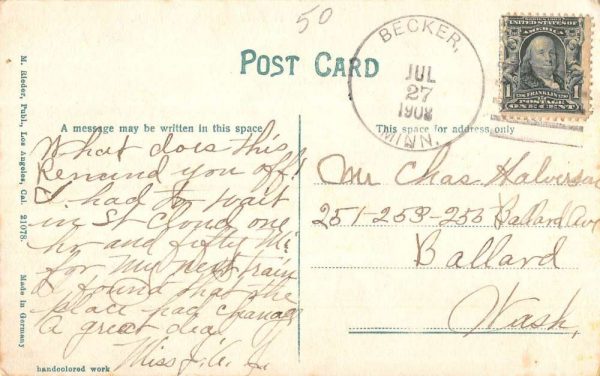 50
POST CARD
BECKER,
JUL
27
1908
MINN.
UNITED STATES OF AMERICA
1 FRANKLIN 1
POSTAGE
ONE CENT
A message may be written in this space
This space for address only
What does this
Remind you off!
I had to wait
in St Cloud one
hr and fifty Mi
for my next train
I found that the
place had changed
a great deal
Miss J. A.
Mr Chas Halverson
251-253-255 Ballard Ave
Ballard
Wash.
M. Rieder, Publ., Los Angeles, Cal. 21078. Made in Germany
handcolored work